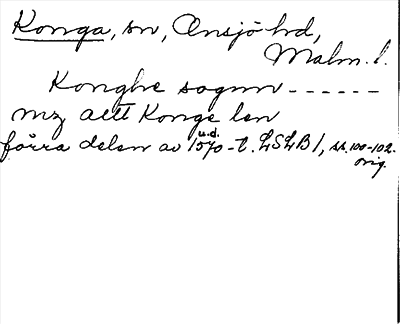 Konga, sn, Onsjö hd,
Malm. l.
Konghe sognn ------
mz altt Konge len
u.d.
förra delen av 1570-t. LSLB 1, ss. 100-102.
orig.